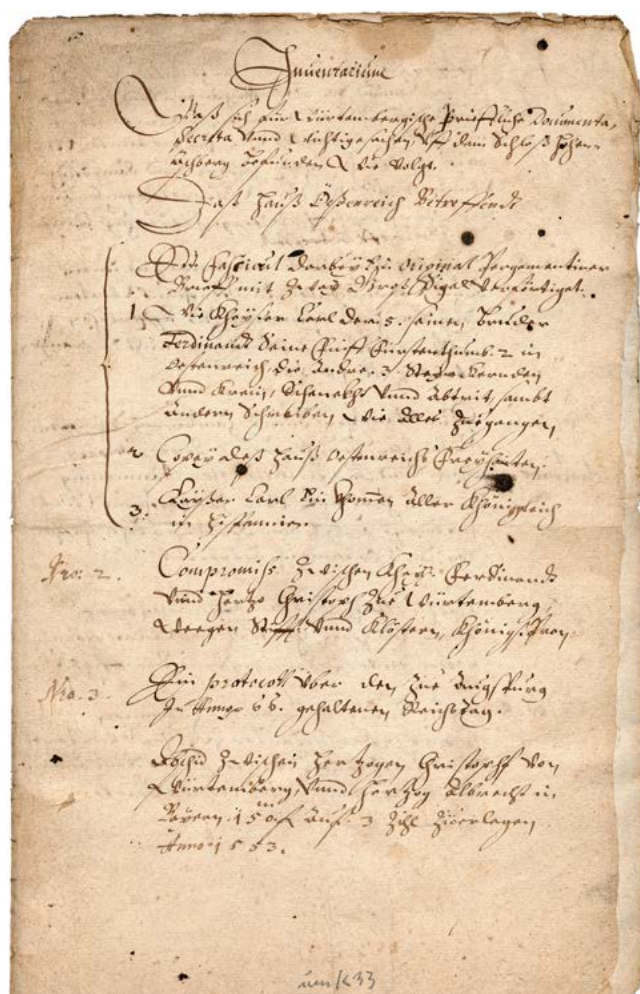 Inuentarium
Waß sich für Würtembergische Brieffliche Documenta,
Secreta Vnnd Wichtige sachen, Vff dem Schloß Hohen-
Aschperg befunden, Wie Volgt.
Daß Hauß Össterreich Betreffendt
Ein Fascicul darbey original Pergamentiner
Brieff mit Sigel Verfertiget.
1 Wie Khayser Carl der 5. seinem Bruder
Ferdinandt Seine Fünff Fürstenthumb. 2 in
Oesterreich die Andre. 3. Steyr Kernden
Vnnd Krain, Schenckht Vnnd Abtrit, sambt
Andern Schreiben, Wie Alles Zuegangen,
2 Copey deß Hauß Oesterreichs Freyheiten.
3. Kayser Carl Aller Khönigreich
in Hispannien.
Nro: 2. Compromiss Zwischen Khay: Ferdinandt
Vnnd Hertzog Christoph Zue Würtemberg,
Weegen Stifft Vnnd Klöstern, Königs Pron
Nro. 3. Ein protocoll Vber den Zue Augspurg
In Anno 66. gehaltenen Reichstag.
Abschid Zwischen Hertzogen Christoph Von
Würtemberg Vnnd Hertzog Albrecht in
Bayern. Auf 3 Zihl Zuerlegen
Anno 1553.